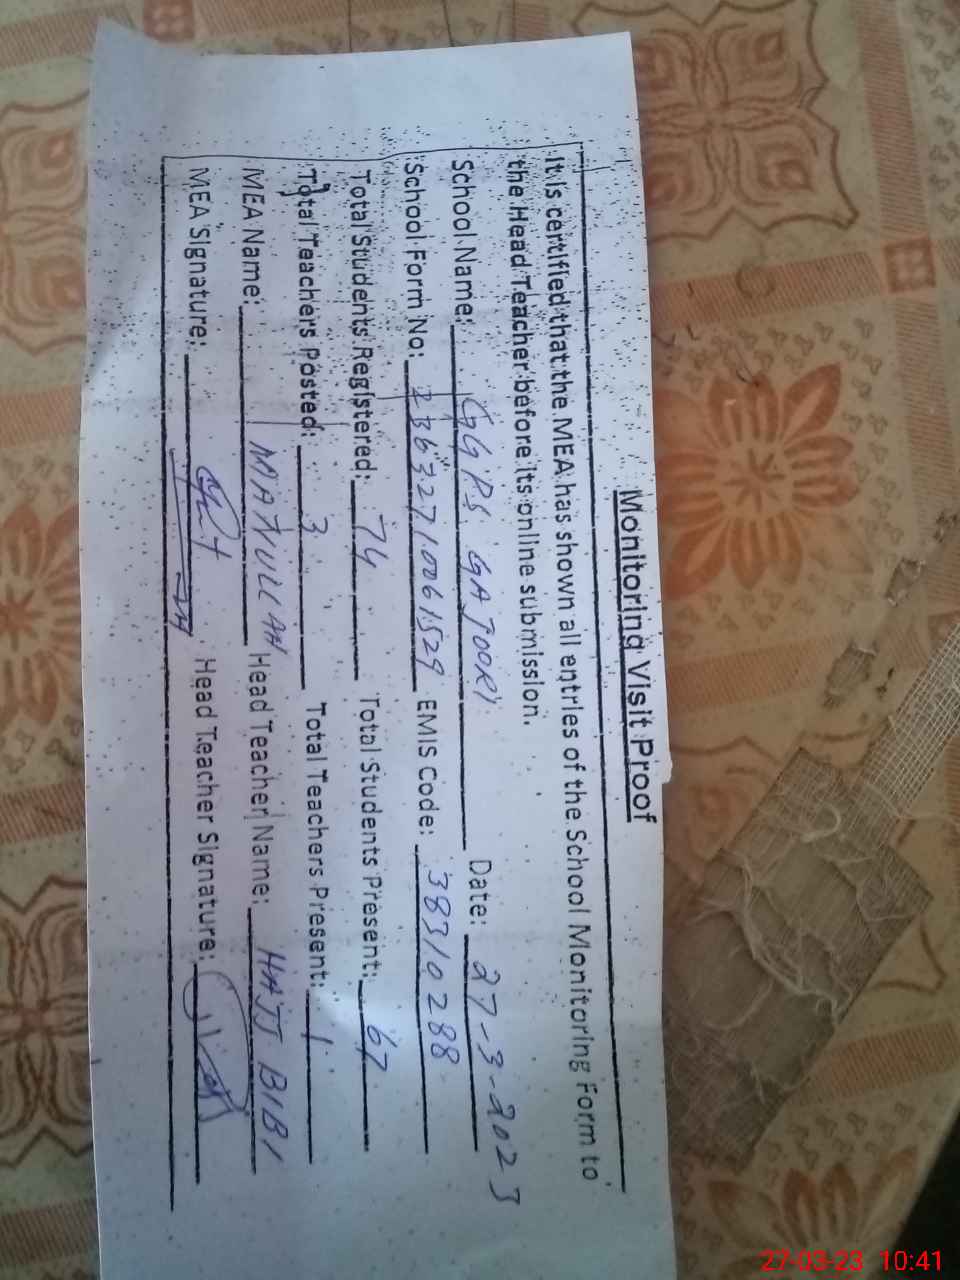 Monitoring Visit Proof
It is certified that the MEA has shown all entries of the School Monitoring Form to
the Head Teacher before its online submission.
School Name: GGPS GAJOORI Date: 27-3-2023
School Form No: 23632710061529 EMIS Code: 38310288
Total Students Registered: 74 Total Students Present: 67
Total Teachers Posted: 3 Total Teachers Present: 1
MEA Name: MATIULLAH Head Teacher Name: HAJJ BIBI
MEA Signature: Head Teacher Signature:
27-03-23 10:41